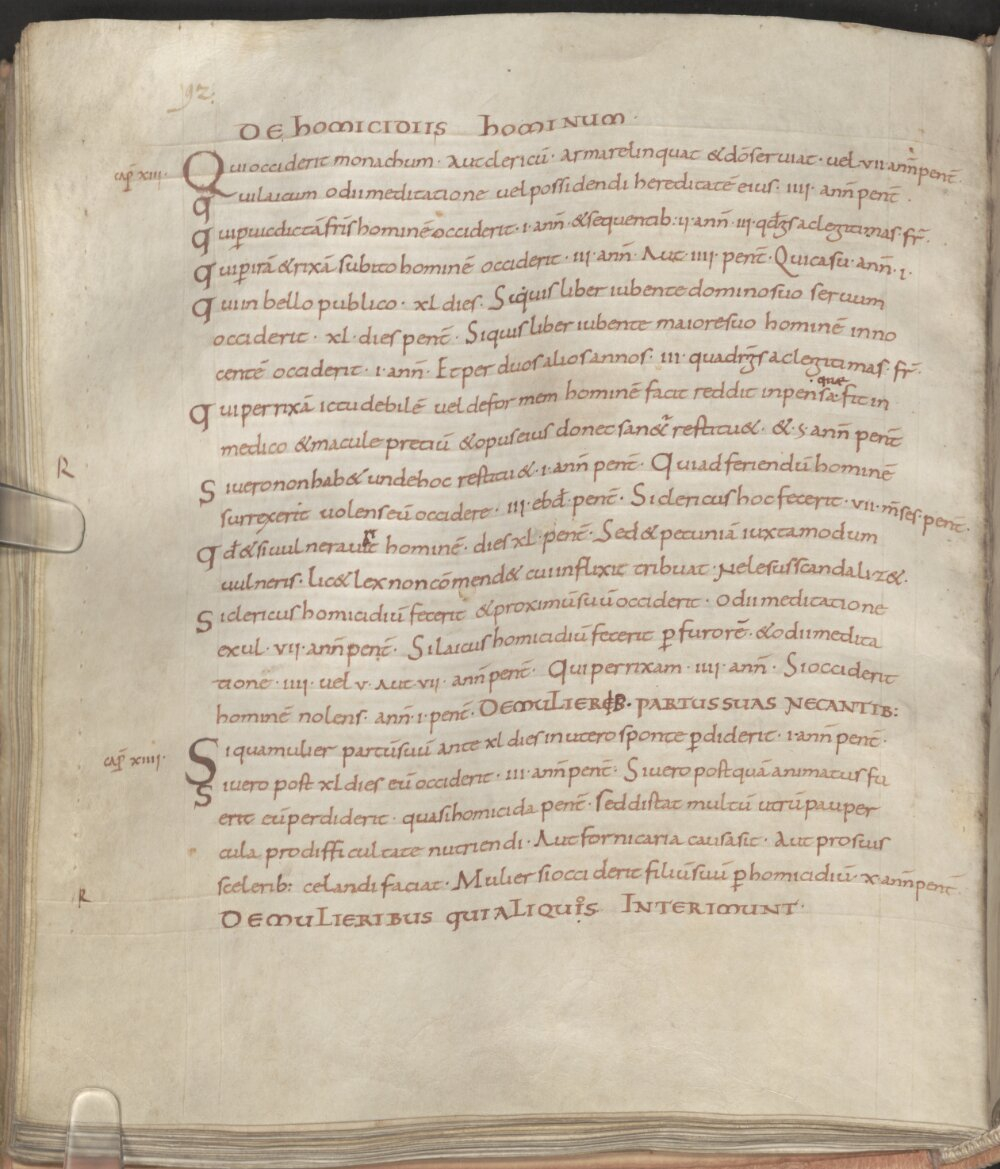 92
DE homICIDIIS hominum.
cap̄ xiii. Qui occiderit monachum. Aut clericū. arma relinquat & dō serviat. vel vii annī penit̄.
Qui laicum odii meditatione vel possidendi hereditatē eius. iiii. ann̄ penit̄.
qui p̱ vindictā fr̄is hominē occiderit. i. ann̄. & sequentib: ii ann̄. iii. qd̄rḡs ac legitimas. fr̄.
qui p̱ irā & rixā subito hominē occiderit. iii. ann̄. Aut. iiii. penit̄. Qui casu. ann̄. i.
qui in bello publico. xl. dies. Si quis liber iubente domino suo servum
occiderit. xl. dies penit̄. Si quis liber iubente maiore suo hominē inno
centē occiderit. i. ann̄. Et per duos alios annos. iii. quadrḡs ac legitimas. fr̄.
qui per rixā ictu debilē vel deformem hominē facit reddit inpensa que fit in
medico & macule pretiū & opus eius donec san&ur restitu&. & s ann̄ penit̄
Si vero non hab& unde hoc restitu&. i. ann̄ penit̄. Qui ad feriendū hominē
R surrexerit volens eū occidere. iii. ebd̄. penit̄. Si clericus hoc fecerit. vii. m̄ses. penit̄.
qd̄ & si vulneraverit hominē. dies xl. penit̄. Sed & pecuniā iuxta modum
vulneris. lic& lex non cōmend& cui inflixit tribuat. Ne lesus scandaliz&.
Si clericus homicidiū fecerit & proximū suū occiderit. odii meditatione
exul. vii. ann̄ penit̄. Si laicus homicidiū fecerit p̱ furorē. & odii medita
tionē. iiii. vel v. Aut vii. ann̄ penit̄. Qui per rixam. iiii. ann̄. Si occiderit
hominē nolens. ann̄. i. penit̄. DE MULIERIB. PARTUS SUAS NECANTIB:
cap̄ xiiii. Si qua mulier partū suū ante xl dies in utero sponte p̱diderit. i. ann̄ penit̄.
Si vero post xl dies eū occiderit. iii. ann̄ penit̄. Si vero postquā animatus fu
erit eū perdiderit. quasi homicida penit̄. sed distat multū utrū pauper
cula pro difficultate nutriendi. Aut fornicaria causa sit. Aut pro suis
R scelerib: celandi faciat. Mulier si occiderit filiū suū p̱ homicidiū. x ann̄ penit̄.
DE MULIERIBUS QUI ALIQUOS INTERIMUNT.